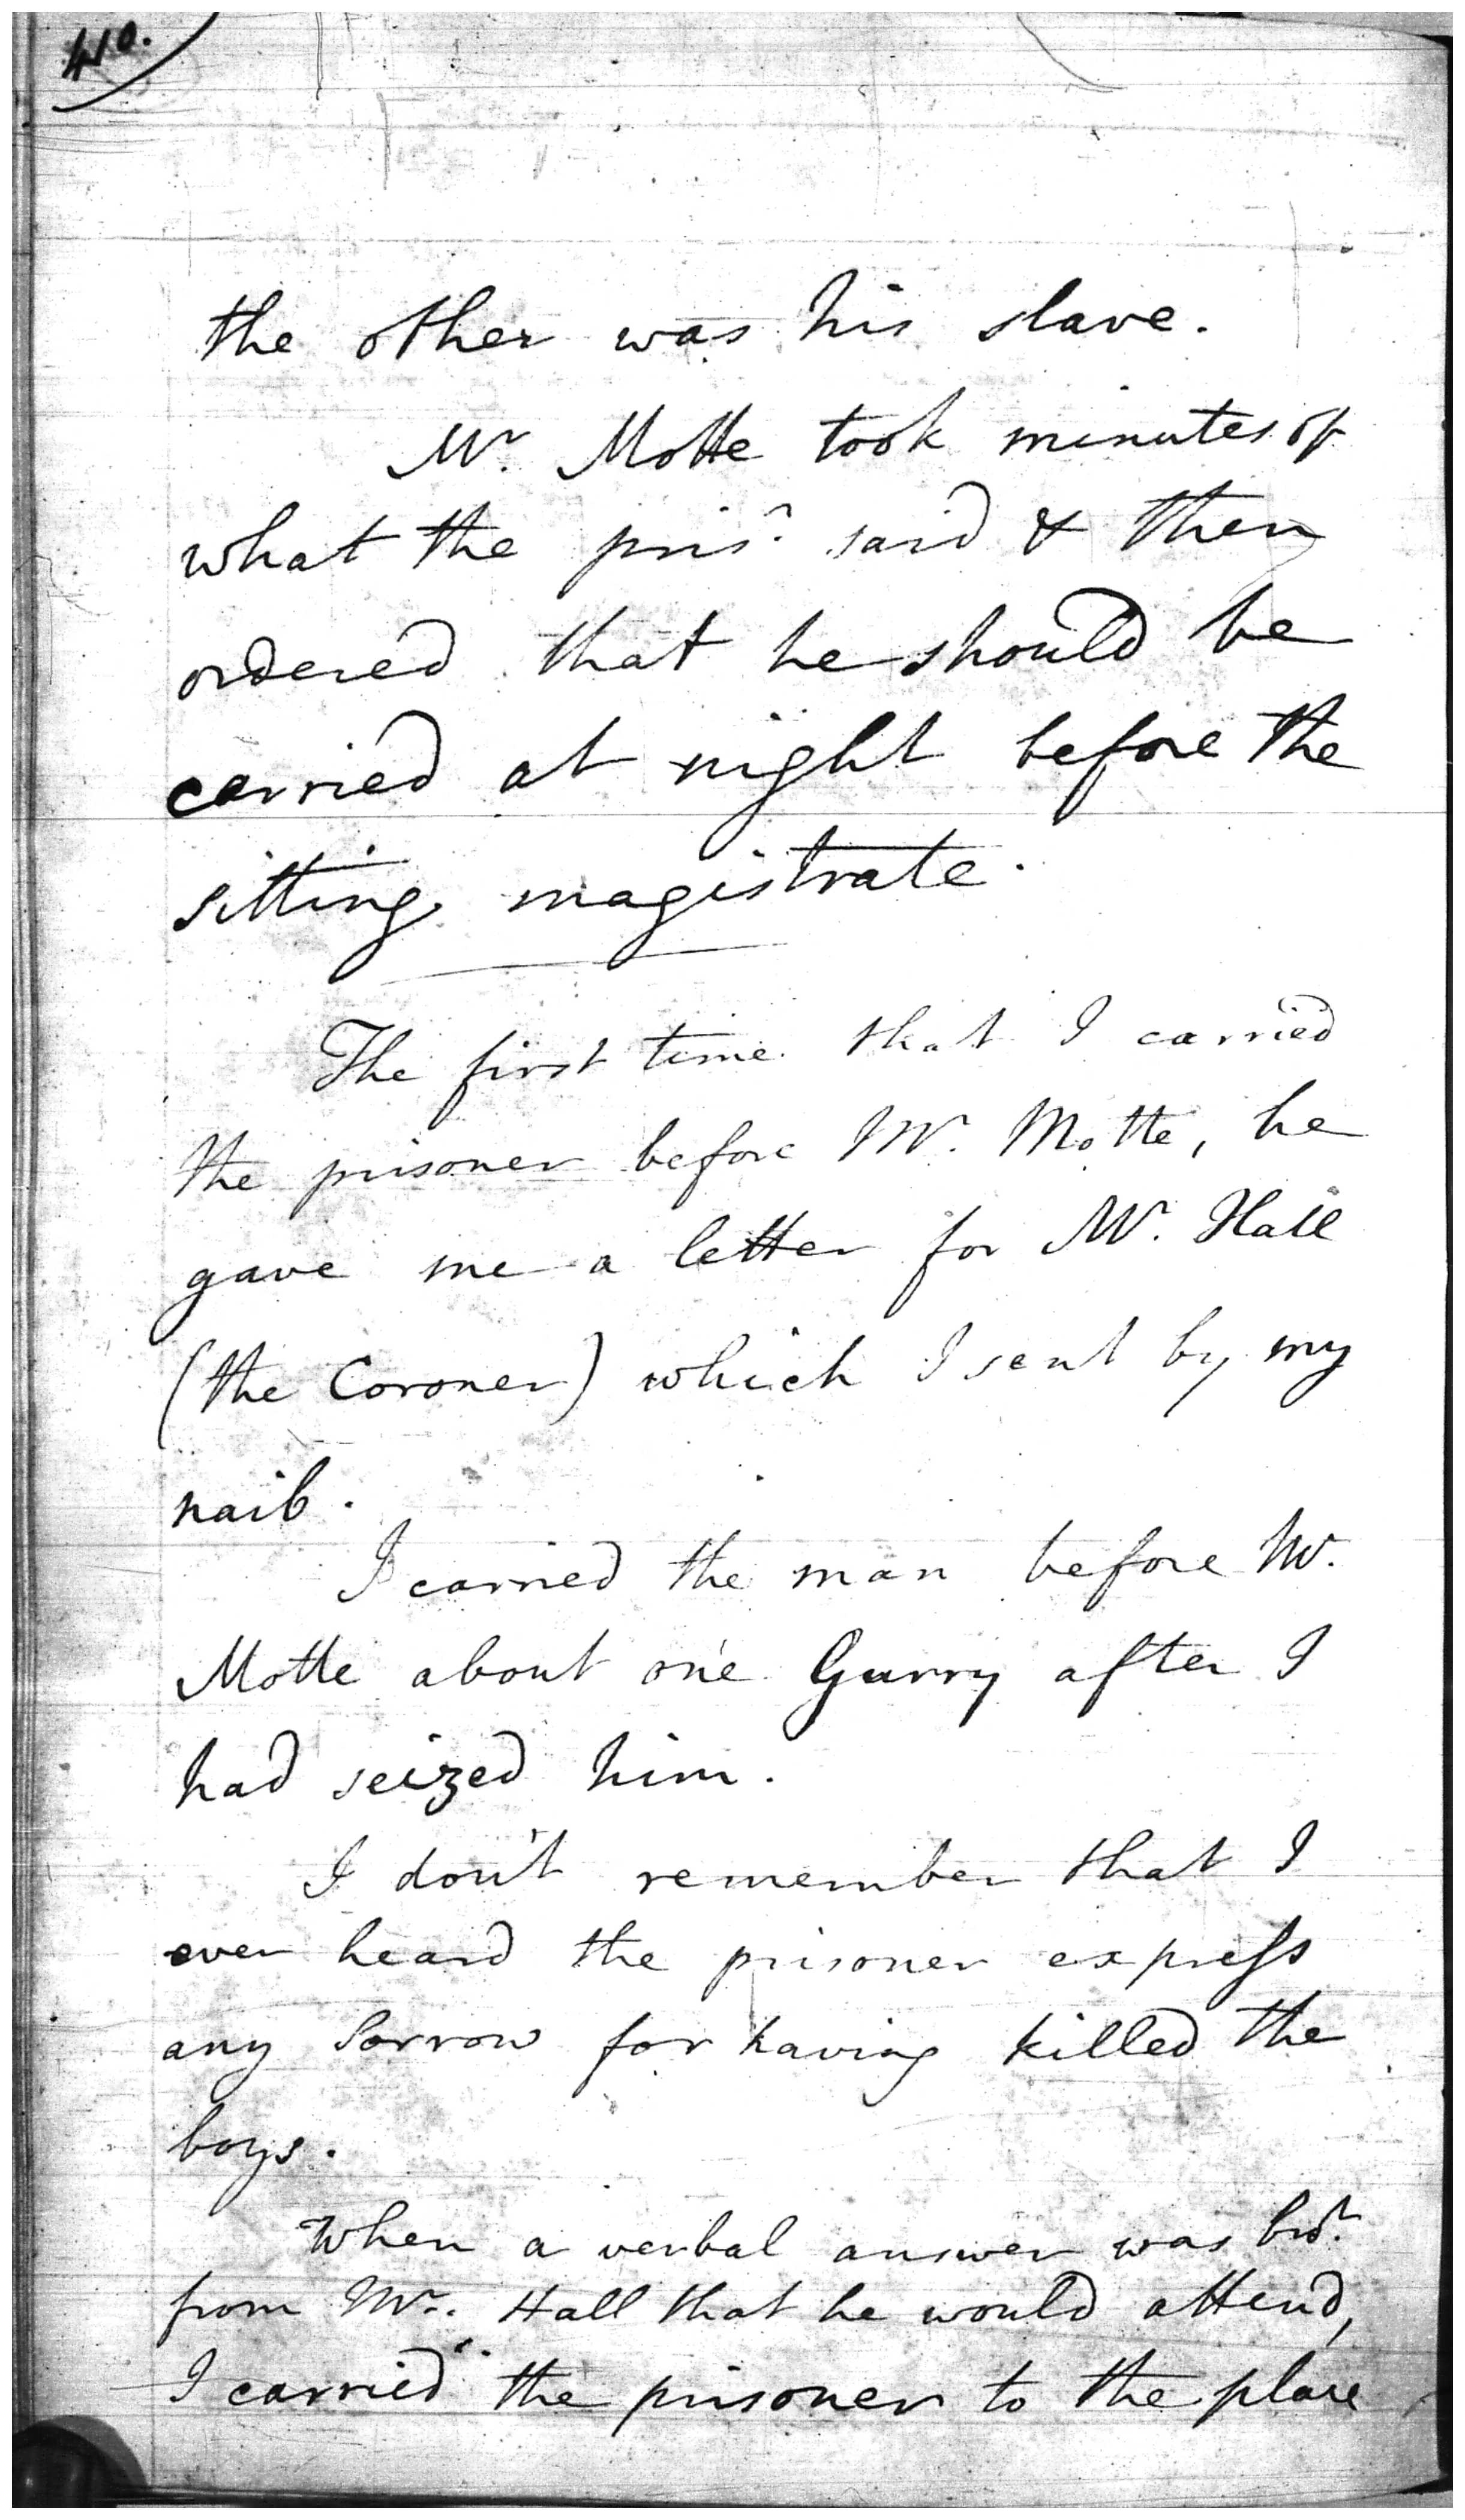 410.
the other was his slave.
Mr. Motte took minutes of
what the prisr. said & then
ordered that he should be
carried at night before the
sitting magistrate.
The first time that I carried
the prisoner before Mr. Motte, he
gave me a letter for Mr. Hall
(the Coroner) which I sent by my
naib.
I carried the man before Mr.
Motte about one Gurry after I
had seized him.
I don't remember that I
ever heard the prisoner express
any sorrow for having killed the
boys.
When a verbal answer was brot.
from Mr. Hall that he would attend,
I carried the prisoner to the place